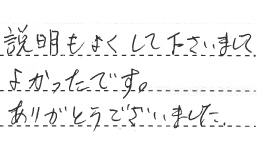 説明もよくして下さいまして
よかったです。
ありがとうございました。